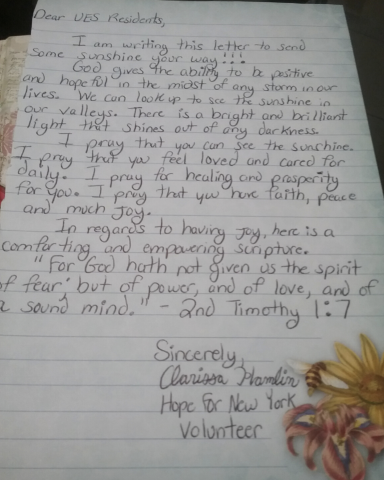 Dear UES Residents,
I am writing this letter to send
some sunshine your way!!!
God gives the ability to be positive
and hopeful in the midst of any storm in our
lives. We can look up to see the sunshine in
our valleys. There is a bright and brilliant
light that shines out of any darkness.
I pray that you can see the sunshine.
I pray that you feel loved and cared for
daily. I pray for healing and prosperity
for you. I pray that you have faith, peace
and much joy.
In regards to having joy, here is a
comforting and empowering scripture.
"For God hath not given us the spirit
of fear; but of power, and of love, and of
a sound mind." - 2nd Timothy 1:7
Sincerely,
Clarissa Hamlin
Hope For New York
Volunteer